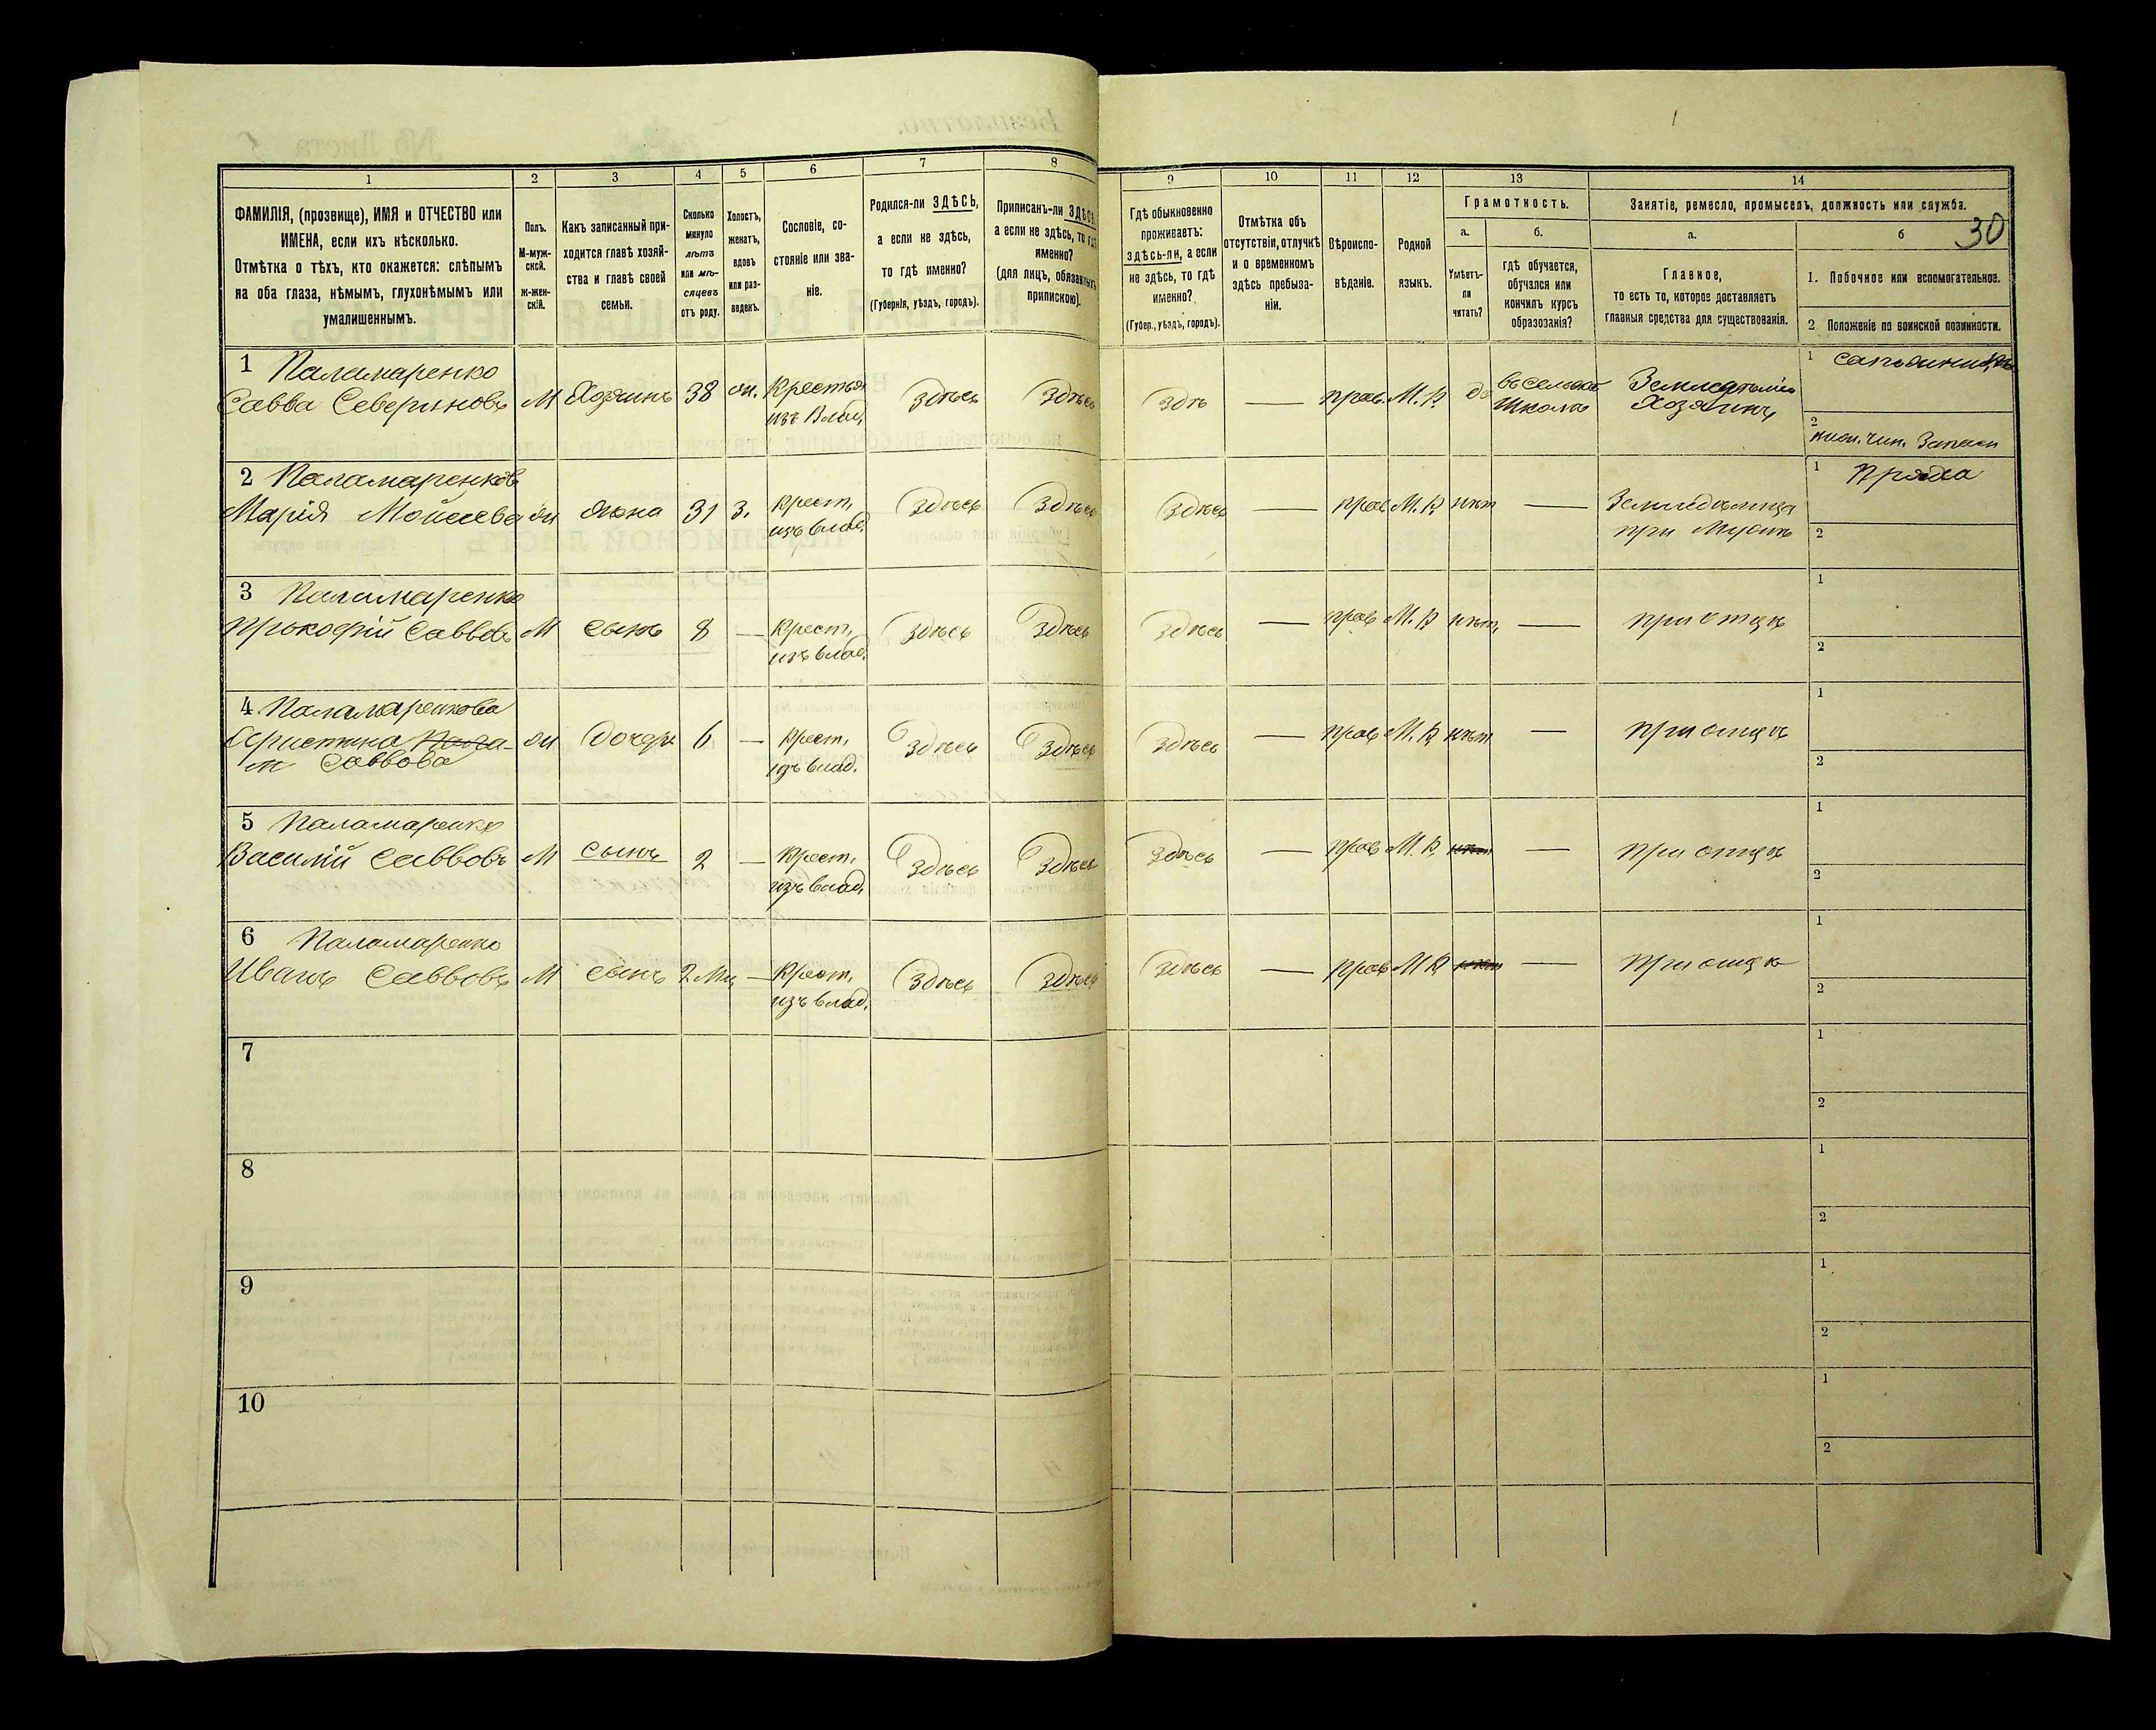 30
1 2 3 4 5 6 7 8 9 10 11 12 13 14
ФАМИЛІЯ, (прозвище), ИМЯ и ОТЧЕСТВО или
ИМЕНА, если ихъ нѣсколько.
Отмѣтка о тѣхъ, кто окажется: слѣпымъ
на оба глаза, нѣмымъ, глухонѣмымъ или
умалишеннымъ.
Полъ.
М-муж-
ской.
ж-жен-
скій.
Какъ записанный при-
ходится главѣ хозяй-
ства и главѣ своей
семьи.
Сколько
минуло
лѣтъ
или мѣ-
сяцевъ
отъ роду.
Холостъ,
женатъ,
вдовъ
или раз-
веденъ.
Сословіе, со-
стояніе или зва-
ніе.
Родился-ли ЗДѢСЬ,
а если не здѣсь,
то гдѣ именно?
(Губернія, уѣздъ, городъ).
Приписанъ-ли ЗДѢСЬ,
а если не здѣсь, то гдѣ
именно?
(для лицъ, обязанныхъ
припискою).
Гдѣ обыкновенно
проживаетъ:
здѣсь-ли, а если
не здѣсь, то гдѣ
именно?
(Губер., уѣздъ, городъ).
Отмѣтка объ
отсутствіи, отлучкѣ
и о временномъ
здѣсь пребыва-
ніи.
Вѣроиспо-
вѣданіе.
Родной
языкъ.
Грамотность.
а.
Умѣетъ-
ли
читать?
б.
гдѣ обучается,
обучался или
кончилъ курсъ
образованія?
Занятіе, ремесло, промыселъ, должность или служба.
а.
Главное,
то есть то, которое доставляетъ
главныя средства для существованія.
б
1. Побочное или вспомогательное.
2 Положеніе по воинской повинности.
1 Паламаренко
Савва Севериновъ М Хозяинъ 38 ж. Крестья
изъ Влад. Здѣсь Здѣсь Здѣ — прав. М.Р. да въ сельской
Школѣ
Хозяинъ
1 сапожникъ
2 нижн. чин. Запаса
2 Паламаренкова
Марія Моисеева ж жена 31 З. Крест.
изъ влад. Здѣсь Здѣсь Здѣсь — прав М.Р. нѣт — Земледѣлица
при Мужѣ
1 Пряха
2
3 Паламаренко
Прокофій Саввовъ М сынъ 8 — Крест.
изъ влад. Здѣсь Здѣсь Здѣсь — прав М.Р нѣт, — при отцѣ
1
2
4 Паламаренкова
Христина Пала-
м Саввова ж дочерь 6 — Крест.
изъ влад. Здѣсь Здѣсь Здѣсь — прав М.Р нѣт — при отцѣ
1
2
5 Паламаренко
Василій Саввовъ М сынъ 2 — Крест.
изъ влад. Здѣсь Здѣсь Здѣсь — прав М.Р. нѣт — при отцѣ
1
2
6 Паламаренко
Иванъ Саввовъ М сынъ 2 Мц — Крест.
изъ влад. Здѣсь Здѣсь Здѣсь — прав М Р нѣт — при отцѣ
1
2
7
1
2
8
1
2
9
1
2
10
1
2